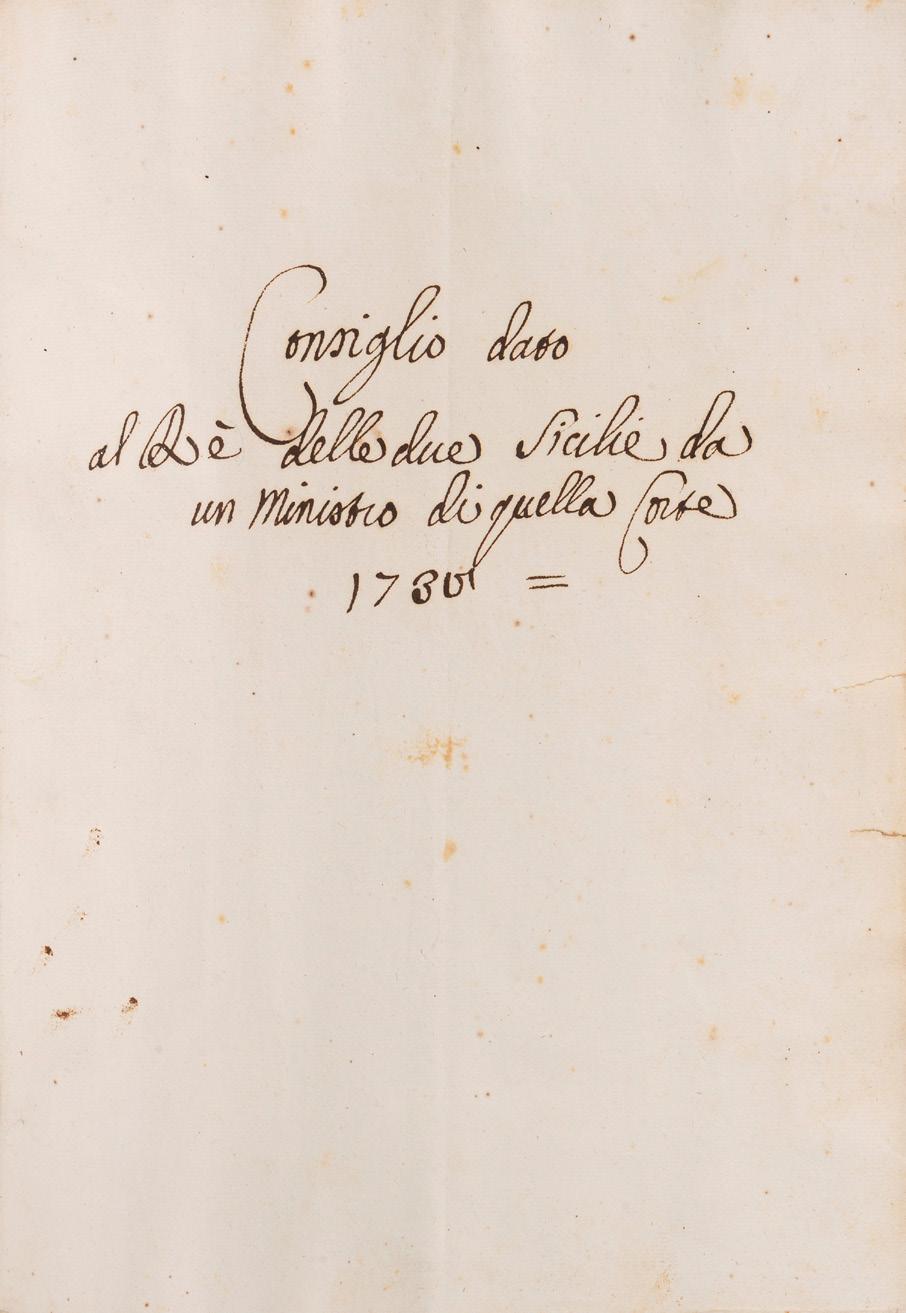 Consiglio dato
al Rè delle due Sicilie da
un Ministro di quella Corte
=